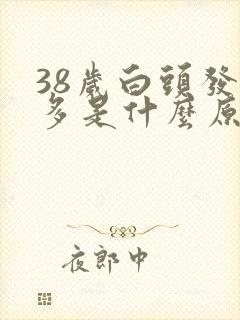 38歲白頭發
多是什麼原
夜郎中